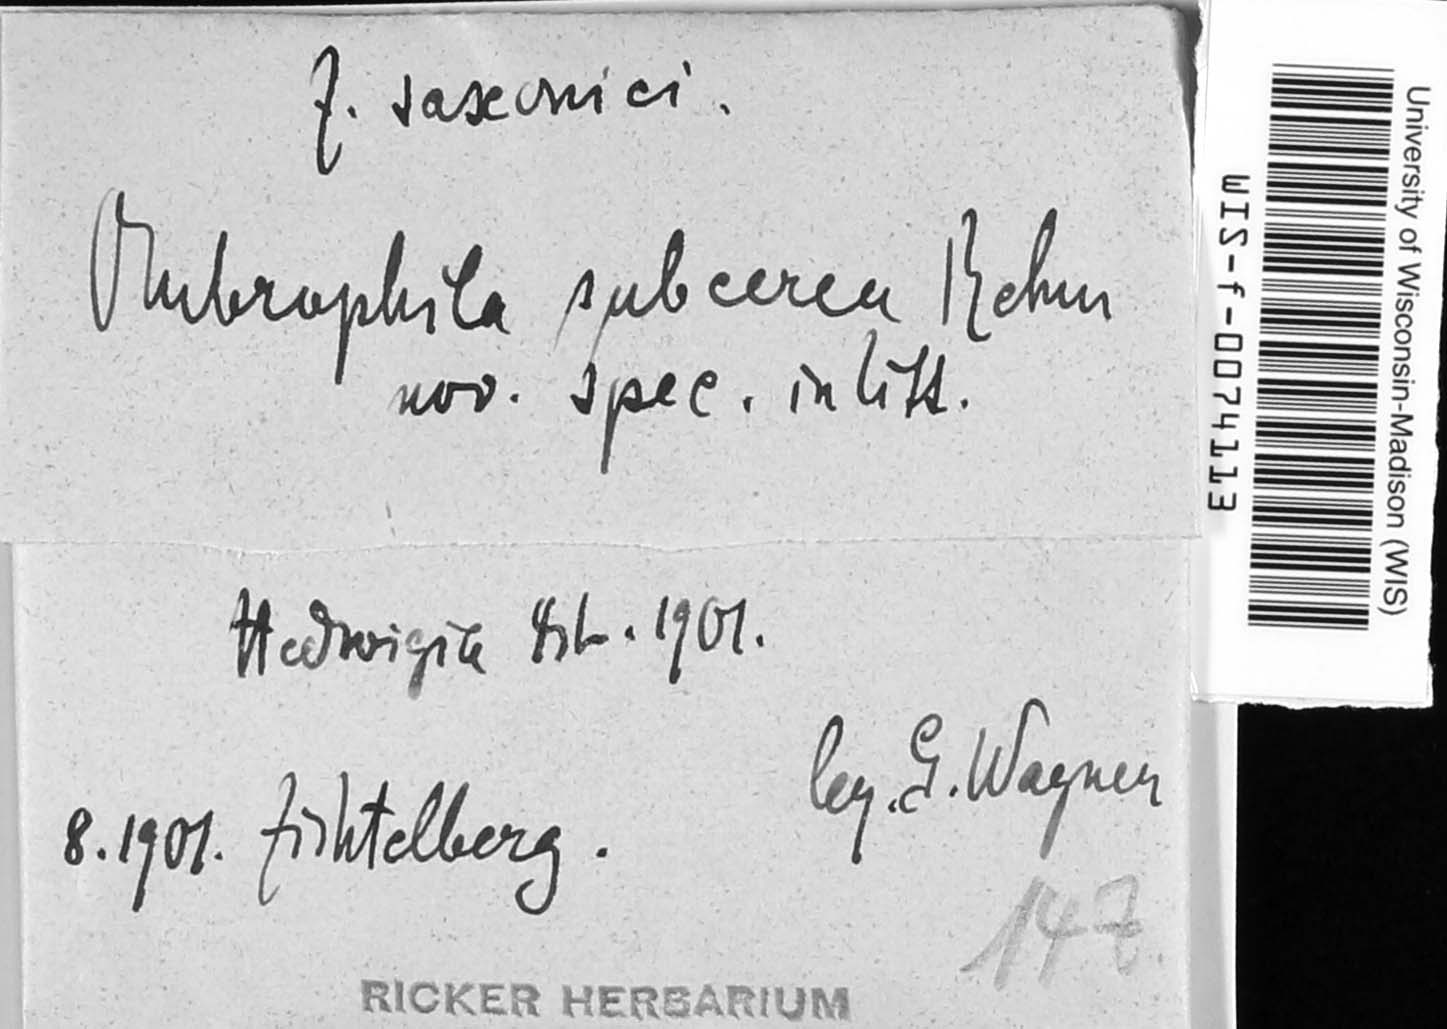 F. saxonici.
Ombrophila subcerea Rehm
nov. spec. in litt.
Hedwigia 1901.
leg. G. Wagner
8.1901. Fichtelberg.
147.
RICKER HERBARIUM
University of Wisconsin-Madison (WIS)
WIS-f-0074113